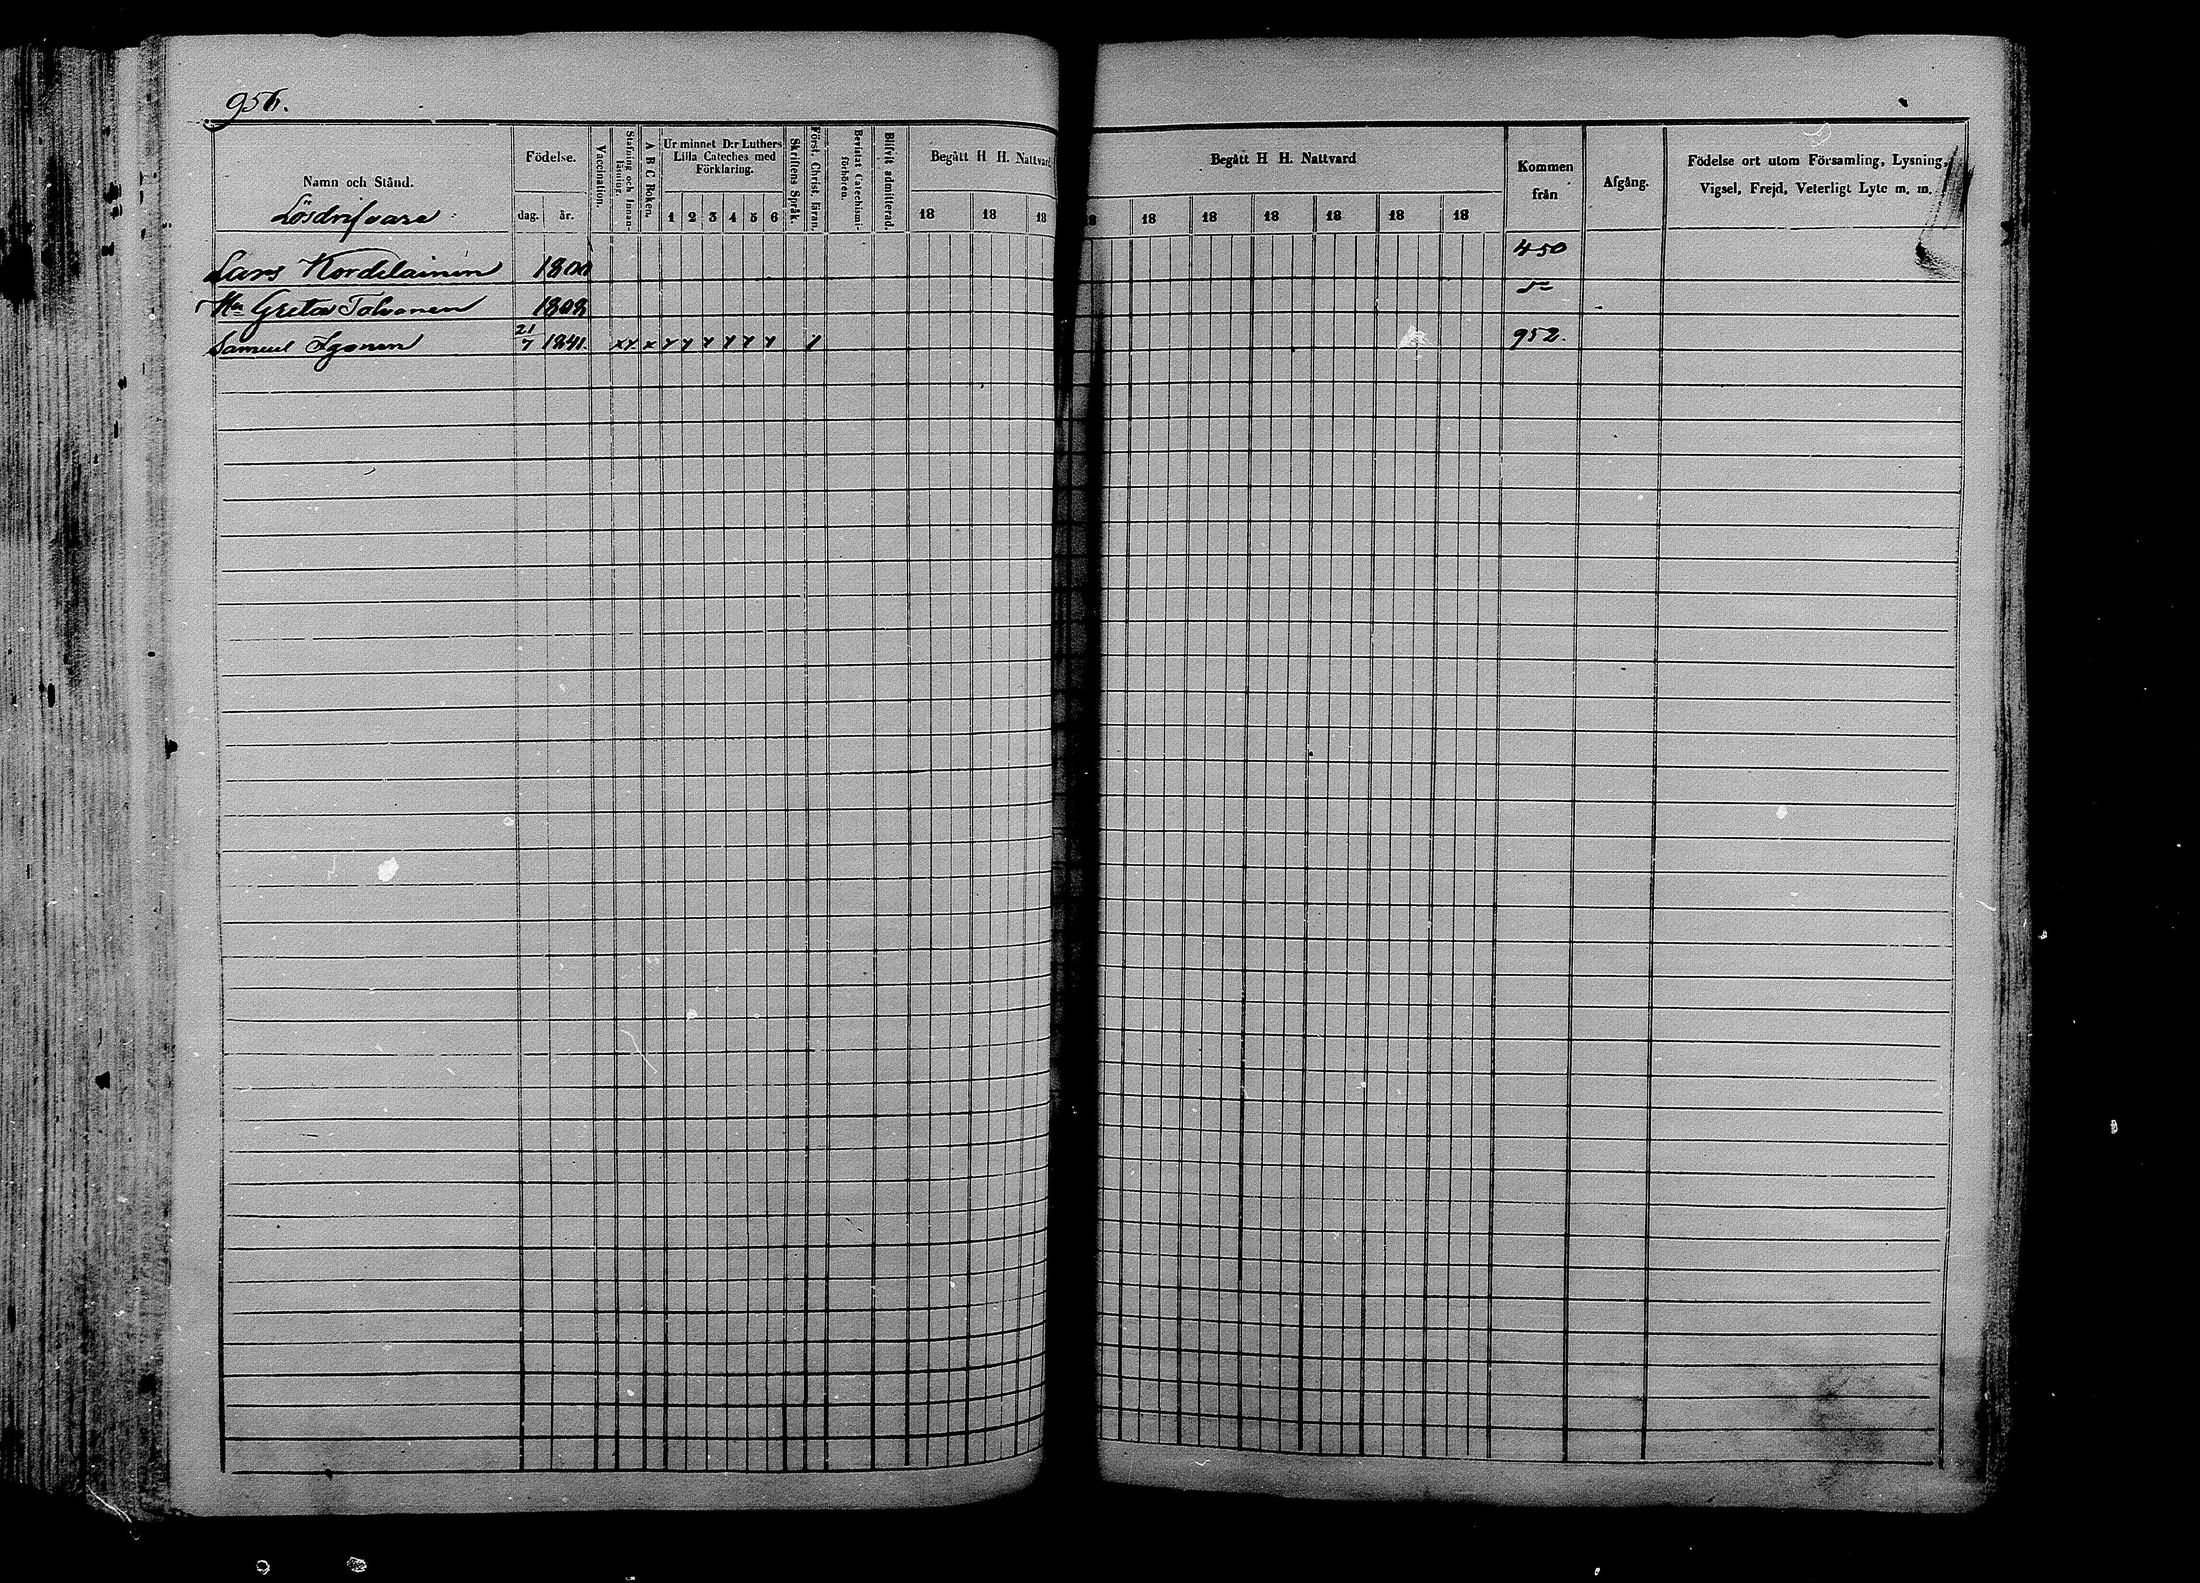 956.
Namn och Stånd.
Lösdrifvare
Födelse.
dag. år.
Vaccination.
Stafning och Innanläsning.
A B C Boken.
Ur minnet D:r Luthers
Lilla Cateches med
Förklaring.
1 2 3 4 5 6
Skriftens Språk.
Först. Christ. läran.
Bevistat Catechismi-förhören.
Blifvit admitterad.
Begått H H. Nattvard
18 18 18
Begått H H. Nattvard
18 18 18 18 18 18
Kommen
från
Afgång.
Födelse ort utom Församling, Lysning,
Vigsel, Frejd, Veterligt Lyte m. m.
Lars Kordelainen 1800 450
Hu Greta Tolvanen 1808
Samuel 21/7 1841. 952.